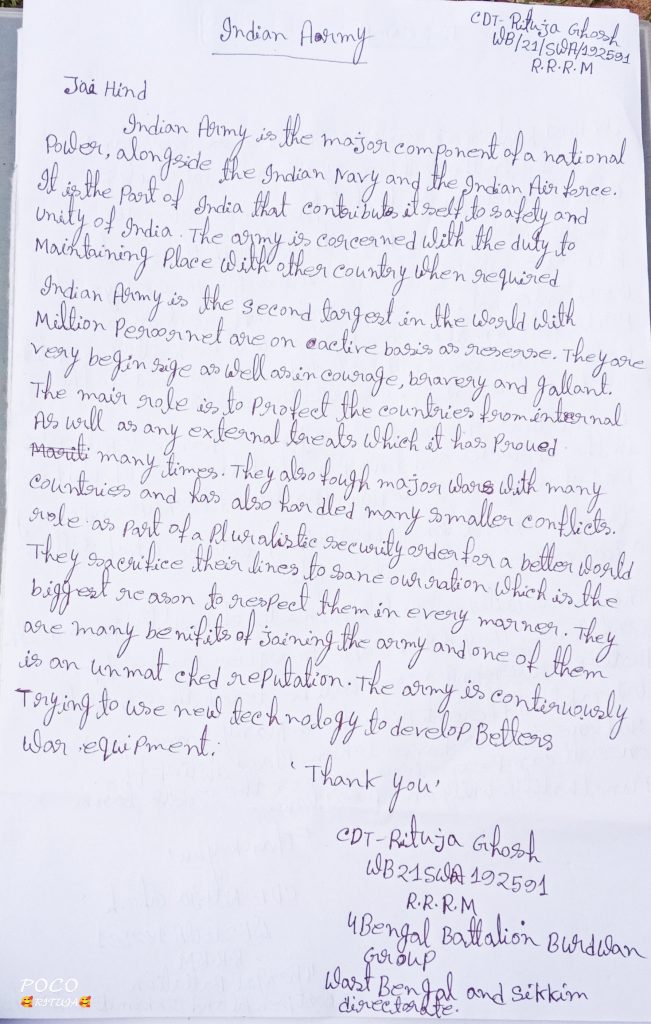 Indian Aormy
CDT- Rituja Ghosh
WB/21/SWA/192591
R.R.R.M
Jai Hind
Indian Army is the major component of a national
Power, alongside the Indian Navy and the Indian Air force.
It is the Part of India that contributs itself to safety and
unity of India. The army is corcerned with the duty to
Maintaining Place with other country when required
Indian Army is the second largest in the world with
Million Persornet are on active basis as reserse. They are
very begin sige as well as in courage, bravery and gallant.
The mair role is to Protect the countries from internal
As well as any external treats which it has Proved
many times. They also fough major wars with many
Countries and has also hardled many smaller conflicts.
role as Part of a Pluralistic security order for a better world
They sacrifice their lines to sane our ration which is the
biggest reason to respect them in every marner. They
are many benifits of jaining the army and one of them
is an unmatched rePutation. The army is contiruously
Trying to use new technology to develop Betlers
War equipment.
'Thank you'
CDT- Rituja Ghosh
WB21SWA192591
R.R.R.M
4 Bengal Battalion Burdwan
Group
Wast Bengal and Sikkim
directorate.
POCO
RITUJA